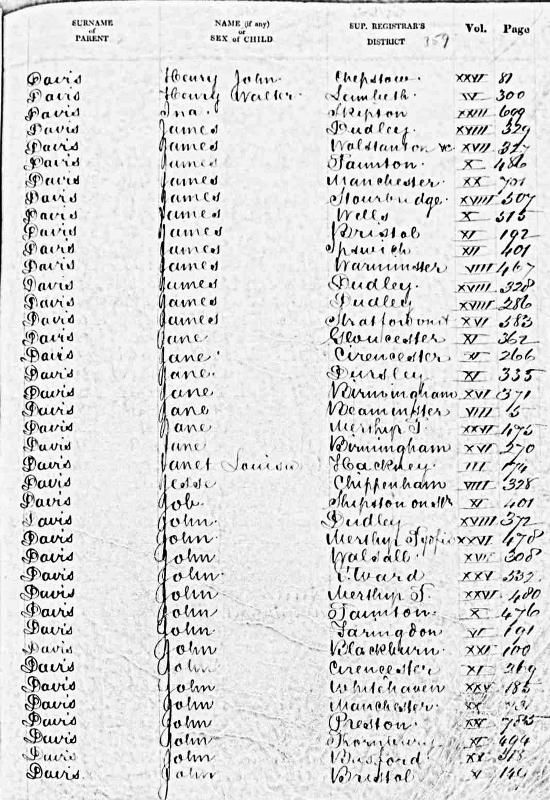 SURNAME of PARENT NAME (if any) or SEX of CHILD. SUP. REGISTRAR'S DISTRICT 359 Vol. Page
Davis Henry John. Chepstow. XXVI 81
Davis Henry Walter. Lambeth. IV 300
Davis Ina. Skipton XXIII 609
Davis James Dudley. XVIII 329
Davis James Wolstanton &c XVII 327
Davis James Taunton. X 486
Davis James Manchester. XX 701
Davis James Stourbridge. XVIII 507
Davis James Wells X 515
Davis James Bristol XI 192
Davis James Ipswich XII 401
Davis James Warminster VIII 467
Davis James Dudley. XVIII 328
Davis James Dudley XVIII 286
Davis James Stratford XVI 583
Davis Jane Gloucester XI 362
Davis Jane. Cirencester XI 266
Davis Jane. Dursley XI 335
Davis Jane Birmingham XVI 371
Davis Jane Beaminster VIII 15
Davis Jane Merthyr T. XXVI 475
Davis Jane Birmingham XVI 270
Davis Janet Louisa Hackney III 174
Davis Jesse Chippenham VIII 328
Davis Job. Shipston on Str XI 401
Davis John. Dudley XVIII 372
Davis John. Merthyr Tydfil XXVI 478
Davis John Walsall XVII 308
Davis John. Ward XXV 532
Davis John Merthyr T. XXVI 480
Davis John Taunton. X 476
Davis John Faringdon VI 191
Davis John Blackburn. XXI 100
Davis John Cirencester XI 269
Davis John Whitehaven XXV 185
Davis John Manchester. XX
Davis John Preston. XXI 785
Davis John Thornbury. XI 494
Davis John Basford XV 518
Davis. John Bristol